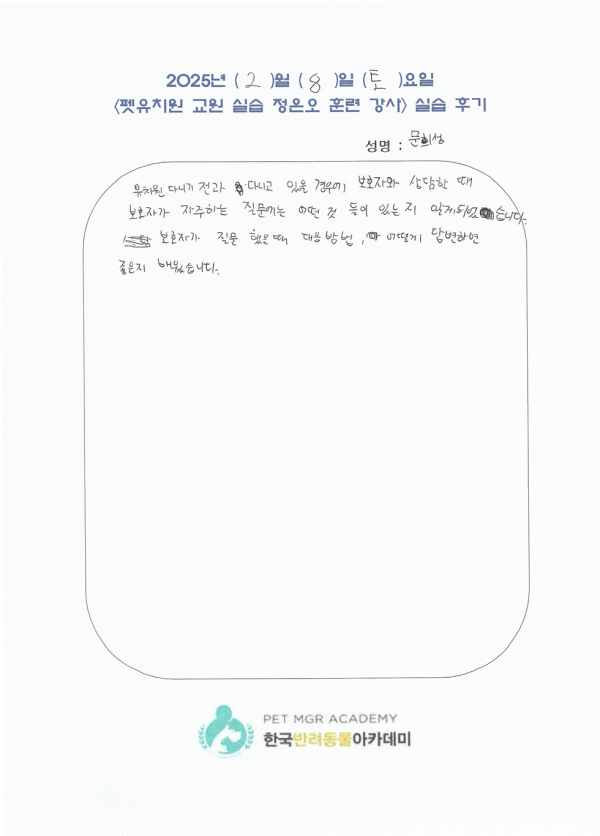 2025년 ( 2 )월 ( 8 )일 ( 토 )요일
<펫유치원 교원 실습 정은오 훈련 강사> 실습 후기
성명 : 문희성
유치원 다니기 전과 다니고 있을 경우에 보호자와 상담할 때
보호자가 자주하는 질문에는 어떤 것 들이 있는지 알게되었습니다.
보호자가 질문 했을때 대응방법, 어떻게 답변하면
좋은지 배웠습니다.
PET MGR ACADEMY
한국반려동물아카데미